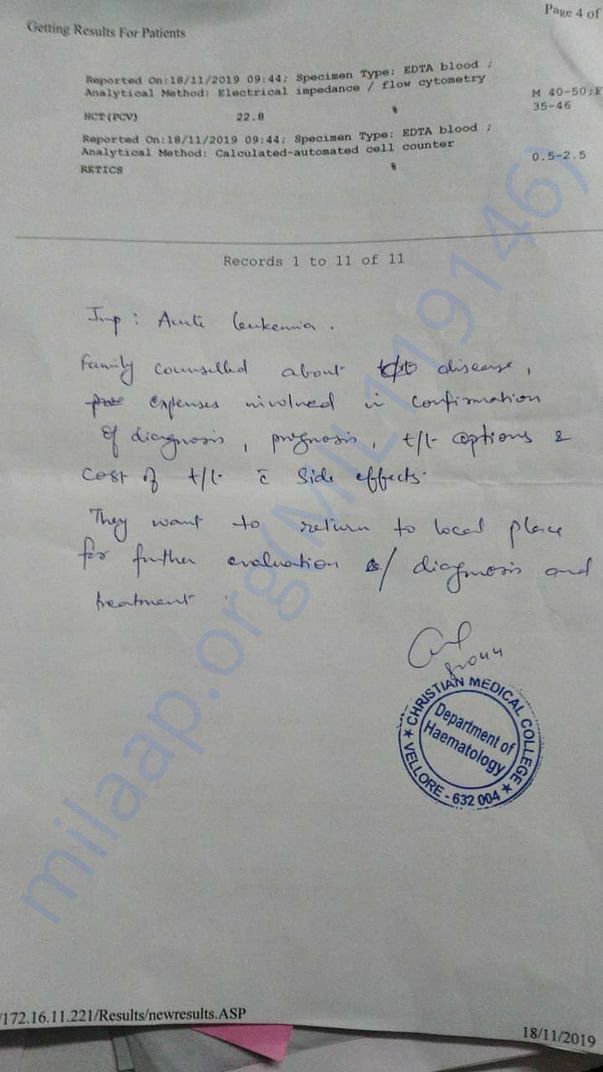 Page 4 of
Getting Results For Patients
Reported On:18/11/2019 09:44; Specimen Type: EDTA blood ;
Analytical Method: Electrical impedance / flow cytometry
M 40-50;F
HCT(PCV) 22.8 % 35-46
Reported On:18/11/2019 09:44; Specimen Type: EDTA blood ;
Analytical Method: Calculated-automated cell counter
RETICS % 0.5-2.5
Records 1 to 11 of 11
Imp : Acute leukemia .
Family counselled about disease,
expenses involved in confirmation
of diagnosis, prognosis, t/t options &
cost of t/t c̄ side effects.
They want to return to local place
for further evaluation / diagnosis and
treatment .
CHRISTIAN MEDICAL COLLEGE
Department of
Haematology
★ VELLORE - 632 004 ★
milaap.org(MIL119146)
/172.16.11.221/Results/newresults.ASP
18/11/2019